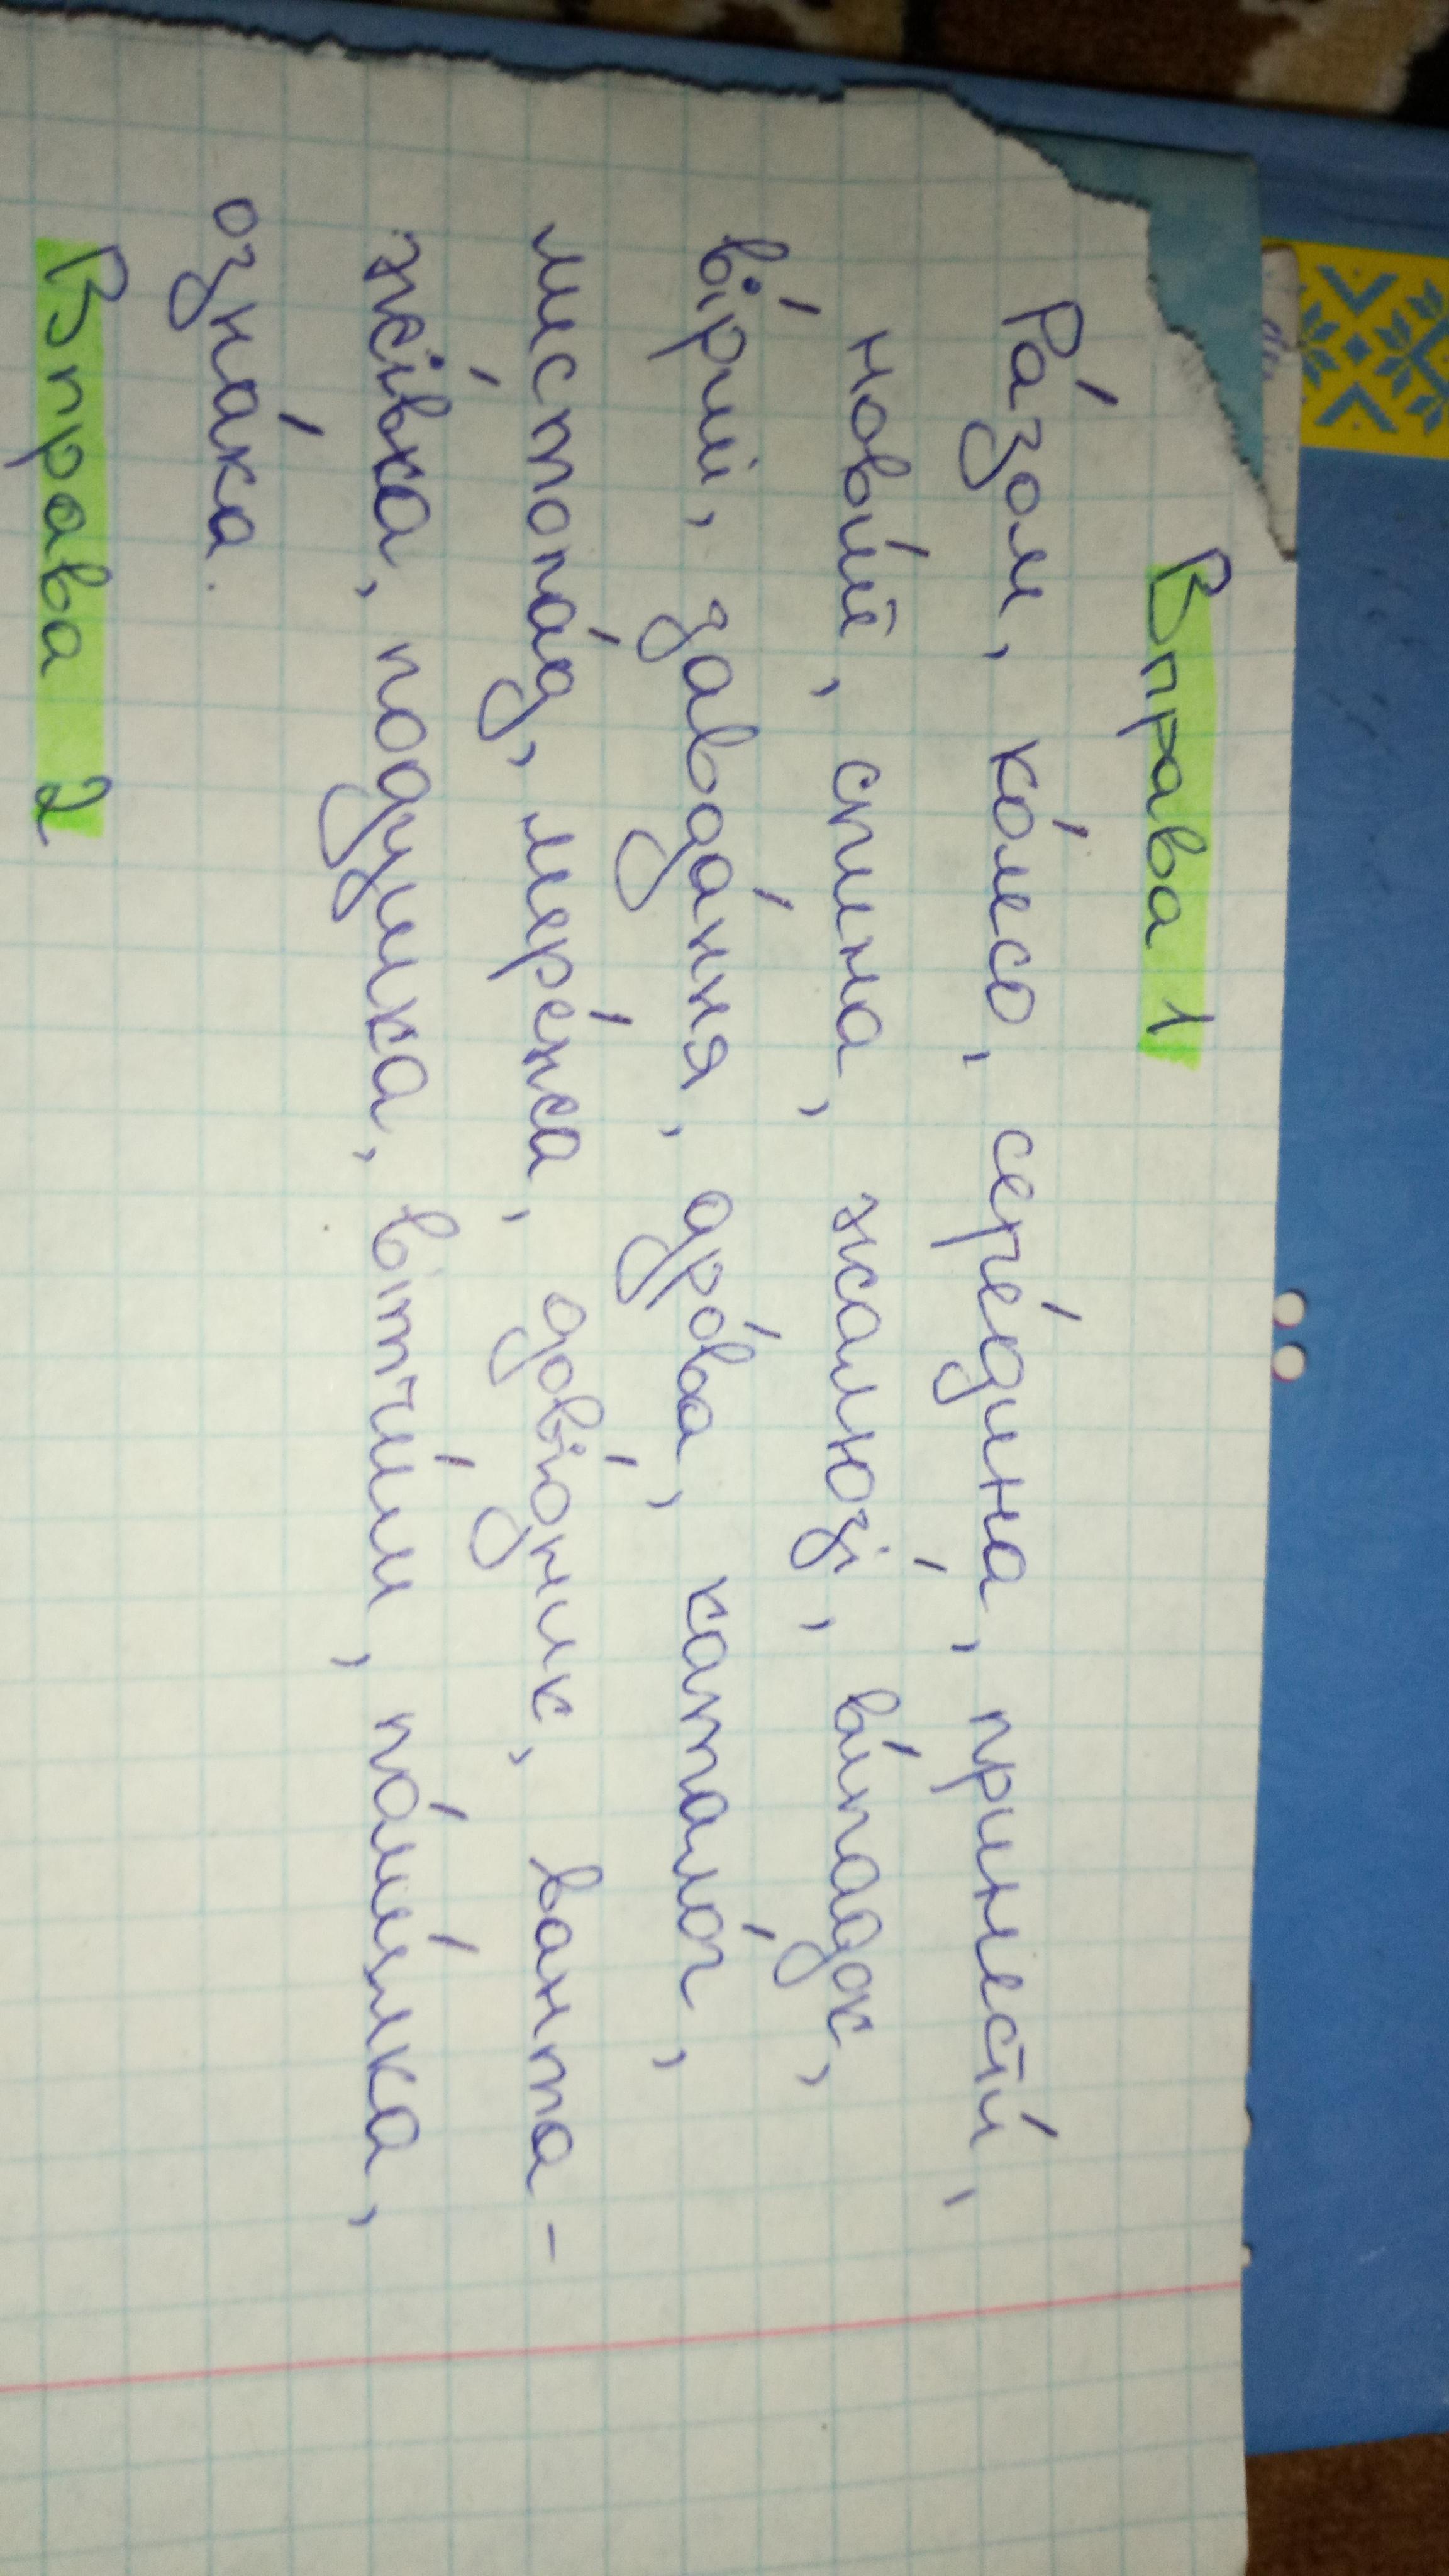 Вправа 1
Ра́зом, ко́лесо, сере́дина, принести́,
нови́й, спина, жалюзі́, ви́падок,
ві́рші, завда́ння, дро́ва, катало́г,
листопа́д, мере́жа, дові́дник, ванта-
жі́вка, подушка, вітчи́м, по́ми́лка,
озна́ка.
Вправа 2